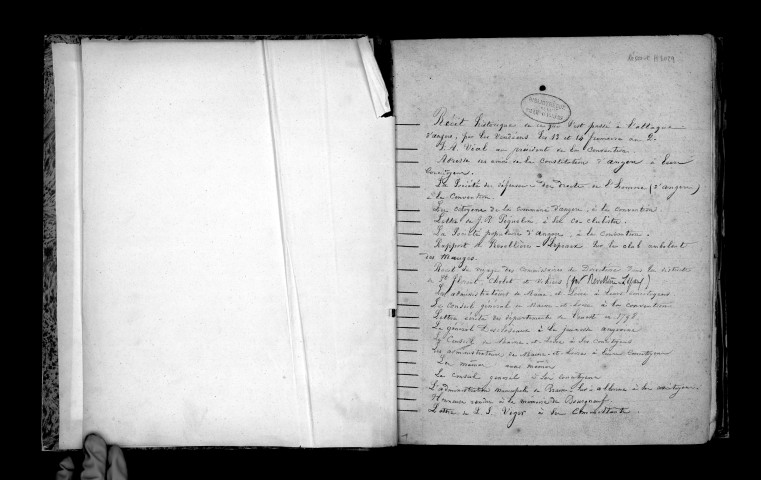 Récit historique de ce qui s'est passé à l'attaque
d'angers, par les vendéens les 13 et 14 frimaire an 2.
J. A. Vial au président de la Convention
Adresse des amis de la Constitution d'angers à leurs
Concitoyens.
La Société des défenseurs des droits de l'homme (d'angers)
à la Convention
Les citoyens de la commune d'angers, à la convention.
Lettre de J. à ses co-clubistes.
La Société populaire d'angers, à la Convention.
Rapport de Revellière-Lepeaux sur le club ambulant
des Mauges.
Récit du voyage des commissaires du Directoire dans les districts
de St florent Cholet et Vihiers (par Revellière-Lépaux)
Les administrateurs de Maine et Loire à leurs concitoyens
Le Conseil général de Maine-et-Loire à la convention
Lettre écrite des départements de l'ouest en 1793.
Le général à la jeunesse angevine
Conseil de Maine-et-Loire à ses concitoyens
Les administrateurs de Maine-et-Loire à leurs concitoyens
Les mêmes aux mêmes
Le Conseil général à ses concitoyens
L'administration municipale de à ses concitoyens.
Honneurs rendus à la mémoire de
Lettre de Viger à ses Commettants.